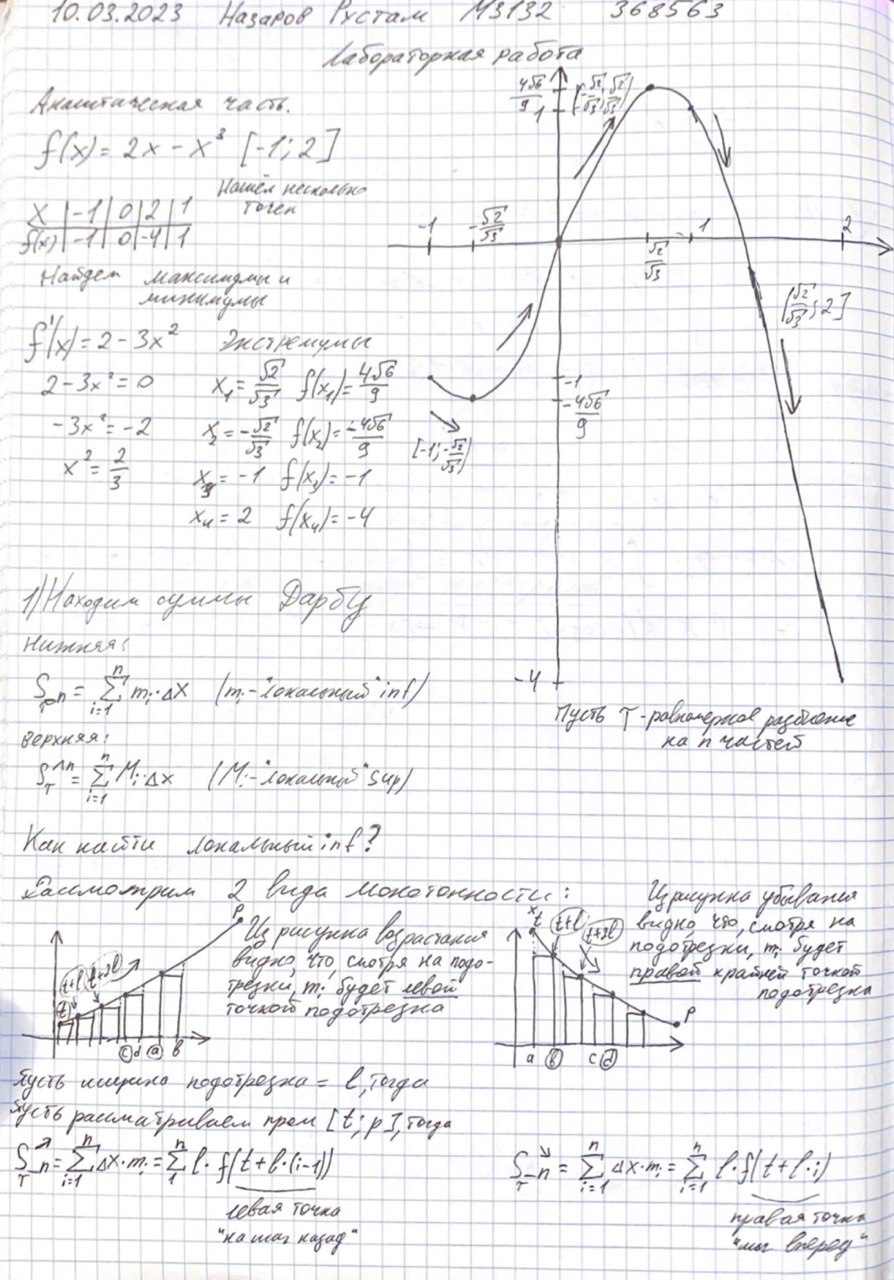 10.03.2023 Назаров Рустам М3132 368563
Лабораторная работа
Аналитическая часть.
f(x) = 2x - x³ [-1; 2]
Нашёл несколько
точек
x | -1 | 0 | 2 | 1
f(x) | -1 | 0 | -4 | 1
Найдем максимумы и
минимумы
f'(x) = 2 - 3x² Экстремумы
2 - 3x² = 0 x₁ = √2/√3 f(x₁) = 4√6/9
-3x² = -2 x₂ = -√2/√3 f(x₂) = -4√6/9
x² = 2/3 x₃ = -1 f(x₃) = -1
x₄ = 2 f(x₄) = -4
4√6/9
1
[-√2/√3; √2/√3)
-1 -√2/√3 √2/√3 1 2
[√2/√3; 2]
-1
-4√6/9
[-1; -√2/√3)
-4
Пусть T - равномерное разбиение
на n частей
1) Находим суммы Дарбу
Нижняя:
S_T n = ∑ᵢ₌₁ⁿ mᵢ·Δx (mᵢ - "локальный" inf)
верхняя:
S_T^n = ∑ᵢ₌₁ⁿ Mᵢ·Δx (Mᵢ - "локальный" sup)
Как найти локальный inf?
Рассмотрим 2 вида монотонности:
Из рисунка возрастания
видно, что, смотря на подо-
трезки, mᵢ будет левой
точкой подотрезка
t t+l t+2l P
c d a b
Из рисунка убывания
видно, что, смотря на
подотрезки, mᵢ будет
правой крайней точкой
подотрезка
t t+l t+2l P
a b c d
Пусть ширина подотрезка = l, тогда
Пусть рассматриваем пром [t; p], тогда
S_T n = ∑ᵢ₌₁ⁿ Δx·mᵢ = ∑₁ⁿ l·f(t+l·(i-1))
левая точка
"на шаг назад"
S_T n = ∑ᵢ₌₁ⁿ Δx·mᵢ = ∑ᵢ₌₁ⁿ l·f(t+l·i)
правая точка
"шаг вперед"